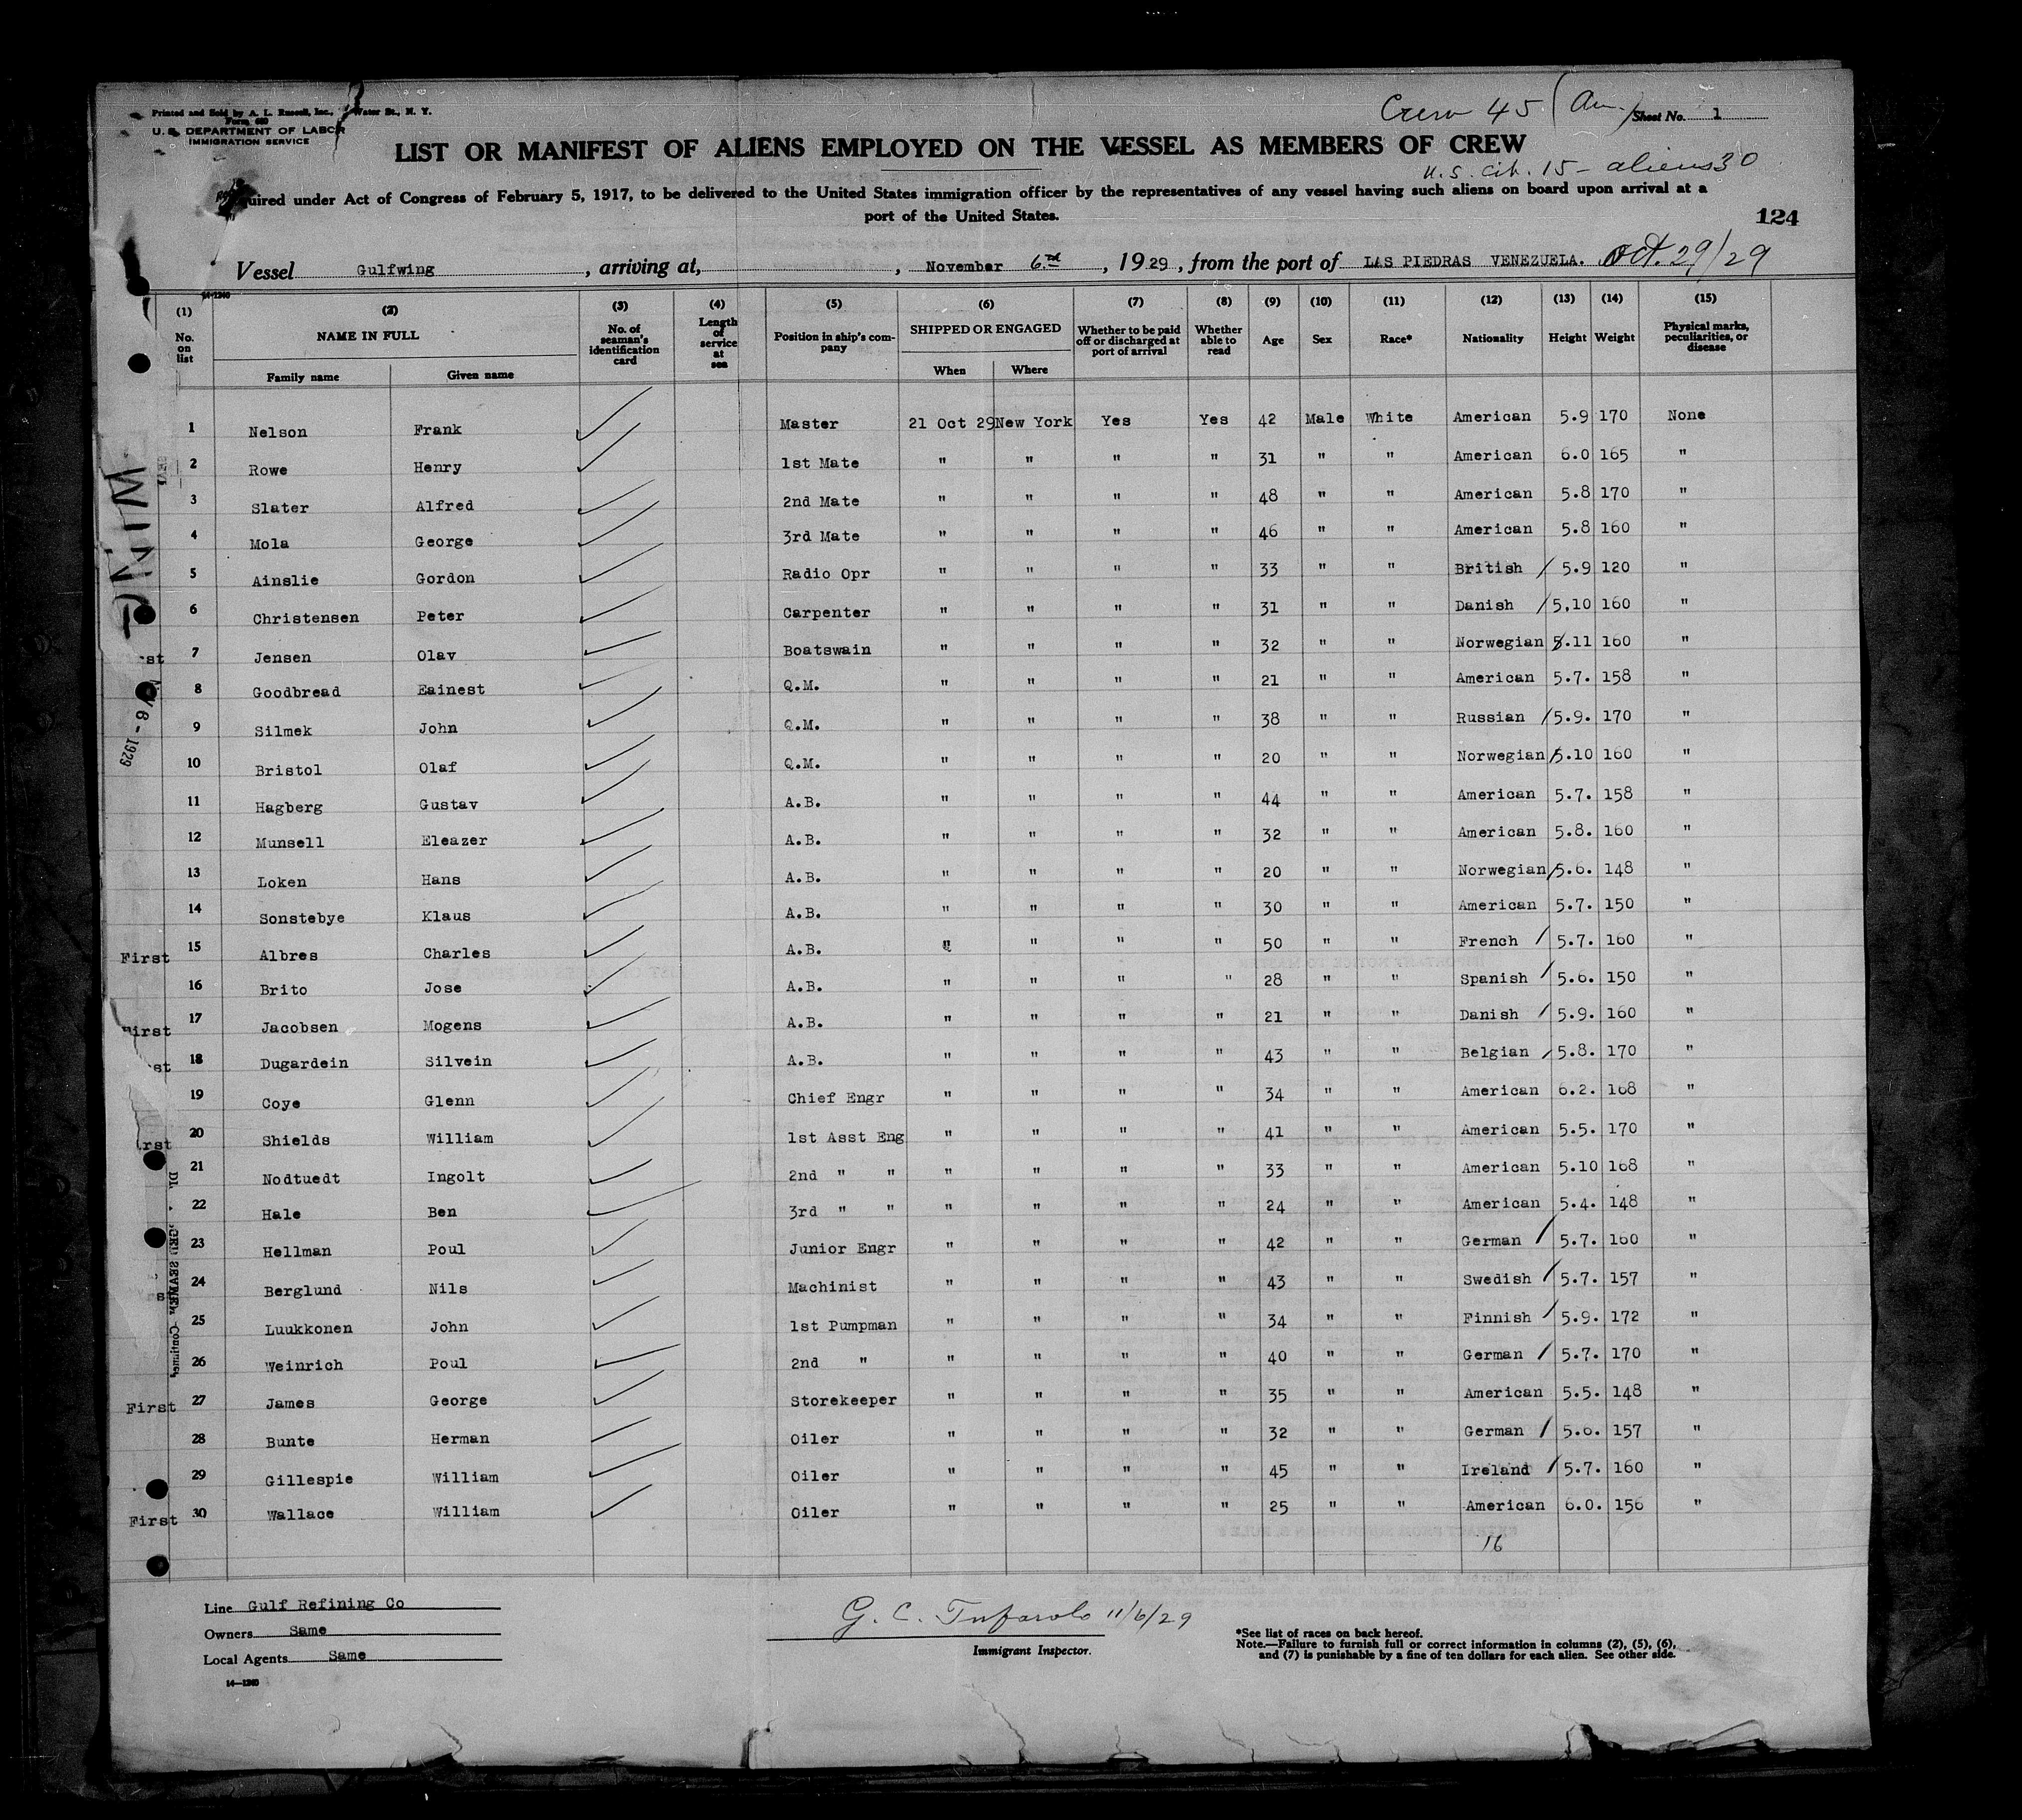 Printed and Sold by A. L. Russell, Inc., Water St., N. Y.
Form 680
U. S. DEPARTMENT OF LABOR
IMMIGRATION SERVICE
Crew 45 (Am.)
Sheet No. 1
LIST OR MANIFEST OF ALIENS EMPLOYED ON THE VESSEL AS MEMBERS OF CREW
U.S. cit. 15 - aliens 30
uired under Act of Congress of February 5, 1917, to be delivered to the United States immigration officer by the representatives of any vessel having such aliens on board upon arrival at a
port of the United States.
124
Vessel Gulfwing, arriving at, , November 6, 1929, from the port of LAS PIEDRAS VENEZUELA. Oct. 29/29
14-1240
(1) (2) (3) (4) (5) (6) (7) (8) (9) (10) (11) (12) (13) (14) (15)
No. on list NAME IN FULL No. of seaman's identification card Length of service at sea Position in ship's company SHIPPED OR ENGAGED Whether to be paid off or discharged at port of arrival Whether able to read Age Sex Race* Nationality Height Weight Physical marks, peculiarities, or disease
Family name Given name When Where
1 Nelson Frank Master 21 Oct 29 New York Yes Yes 42 Male White American 5.9 170 None
2 Rowe Henry 1st Mate " " " " 31 " " American 6.0 165 "
3 Slater Alfred 2nd Mate " " " " 48 " " American 5.8 170 "
4 Mola George 3rd Mate " " " " 46 " " American 5.8 160 "
5 Ainslie Gordon Radio Opr " " " " 33 " " British / 5.9 120 "
6 Christensen Peter Carpenter " " " " 31 " " Danish / 5,10 160 "
7 Jensen Olav Boatswain " " " " 32 " " Norwegian / 5.11 160 "
8 Goodbread Eainest Q.M. " " " " 21 " " American 5.7. 158 "
9 Silmek John Q.M. " " " " 38 " " Russian / 5.9. 170 "
10 Bristol Olaf Q.M. " " " " 20 " " Norwegian / 5.10 160 "
11 Hagberg Gustav A.B. " " " " 44 " " American 5.7. 158 "
12 Munsell Eleazer A.B. " " " " 32 " " American 5.8. 160 "
13 Loken Hans A.B. " " " " 20 " " Norwegian / 5.6. 148 "
14 Sonstebye Klaus A.B. " " " " 30 " " American 5.7. 150 "
First 15 Albres Charles A.B. " " " " 50 " " French / 5.7. 160 "
16 Brito Jose A.B. " " " " 28 " " Spanish / 5.6. 150 "
First 17 Jacobsen Mogens A.B. " " " " 21 " " Danish / 5.9. 160 "
st 18 Dugardein Silvein A.B. " " " " 43 " " Belgian / 5.8. 170 "
19 Coye Glenn Chief Engr " " " " 34 " " American 6.2. 168 "
rst 20 Shields William 1st Asst Eng " " " " 41 " " American 5.5. 170 "
21 Nodtuedt Ingolt 2nd " " " " " " 33 " " American 5.10 168 "
22 Hale Ben 3rd " " " " " " 24 " " American 5.4. 148 "
23 Hellman Poul Junior Engr " " " " 42 " " German / 5.7. 160 "
24 Berglund Nils Machinist " " " " 43 " " Swedish / 5.7. 157 "
25 Luukkonen John 1st Pumpman " " " " 34 " " Finnish / 5.9. 172 "
26 Weinrich Poul 2nd " " " " " 40 " " German / 5.7. 170 "
First 27 James George Storekeeper " " " " 35 " " American 5.5. 148 "
28 Bunte Herman Oiler " " " " 32 " " German / 5.6. 157 "
29 Gillespie William Oiler " " " " 45 " " Ireland / 5.7. 160 "
First 30 Wallace William Oiler " " " " 25 " " American 6.0. 156 "
16
Line Gulf Refining Co
Owners Same
Local Agents Same
14—1240
11/6/29
Immigrant Inspector.
*See list of races on back hereof.
Note.—Failure to furnish full or correct information in columns (2), (5), (6),
and (7) is punishable by a fine of ten dollars for each alien. See other side.
WING
6 - 1929